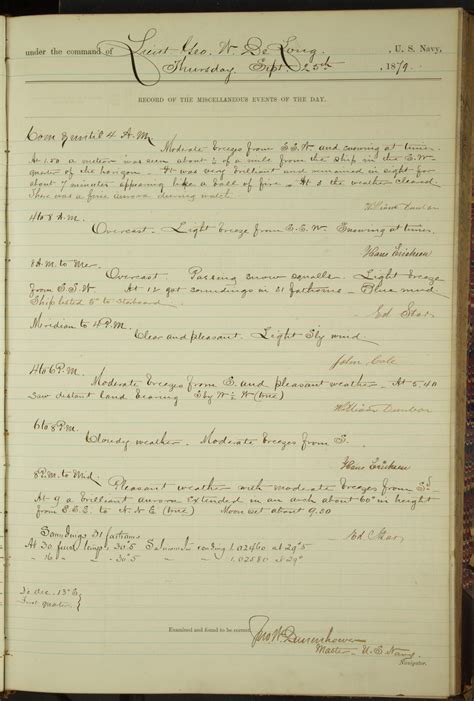 under the command of Lieut. Geo. W. De Long, U. S. Navy,
Thursday Sept 25th, 1879.
RECORD OF THE MISCELLANEOUS EVENTS OF THE DAY.
Com & until 4 A.M.
Moderate breeze from S.S.W. and snowing at times.
At 1.50 a meteor was seen about ½ of a mile from the ship in the S.W.
quarter of the horizon. It was very brilliant and remained in sight for
about 7 minutes appearing like a ball of fire. At 3 the weather cleared.
There was a fine aurora during watch
William Dunbar
4 to 8 A.M.
Overcast. Light breeze from S.S.W. Snowing at times.
Hans Erichsen
8 A.M. to Mer.
Overcast. Passing snow squalls. Light breeze
from S.S.W. At 12 got soundings in 21 fathoms - Blue mud.
Ship listed 5° to starboard.
Ed Star
Meridian to 4 P.M.
Clear and pleasant. Light Sly wind.
John Cole
4 to 6 P.M.
Moderate breezes from S. and pleasant weather. At 5.40
saw distant land bearing SbyW ½ W (true)
William Dunbar
6 to 8 P.M.
Cloudy weather. Moderate breezes from S.
Hans Erichsen
8 P.M. to Mid.
Pleasant weather with moderate breezes from Sd.
At 9 a brilliant aurora extended in an arch about 60° in height
from S.S.E. to N.N.E (true) Moon set about 9.30
Soundings 21 fathoms
Ed Star
At 30 feet temp. 30°.5 Salinometer reading 1.02460 at 29°5
1.02580 29°
dec. 15° S.
first quarter
Examined and found to be correct.
Jno W Danenhower
Master U.S Navy
Navigator.